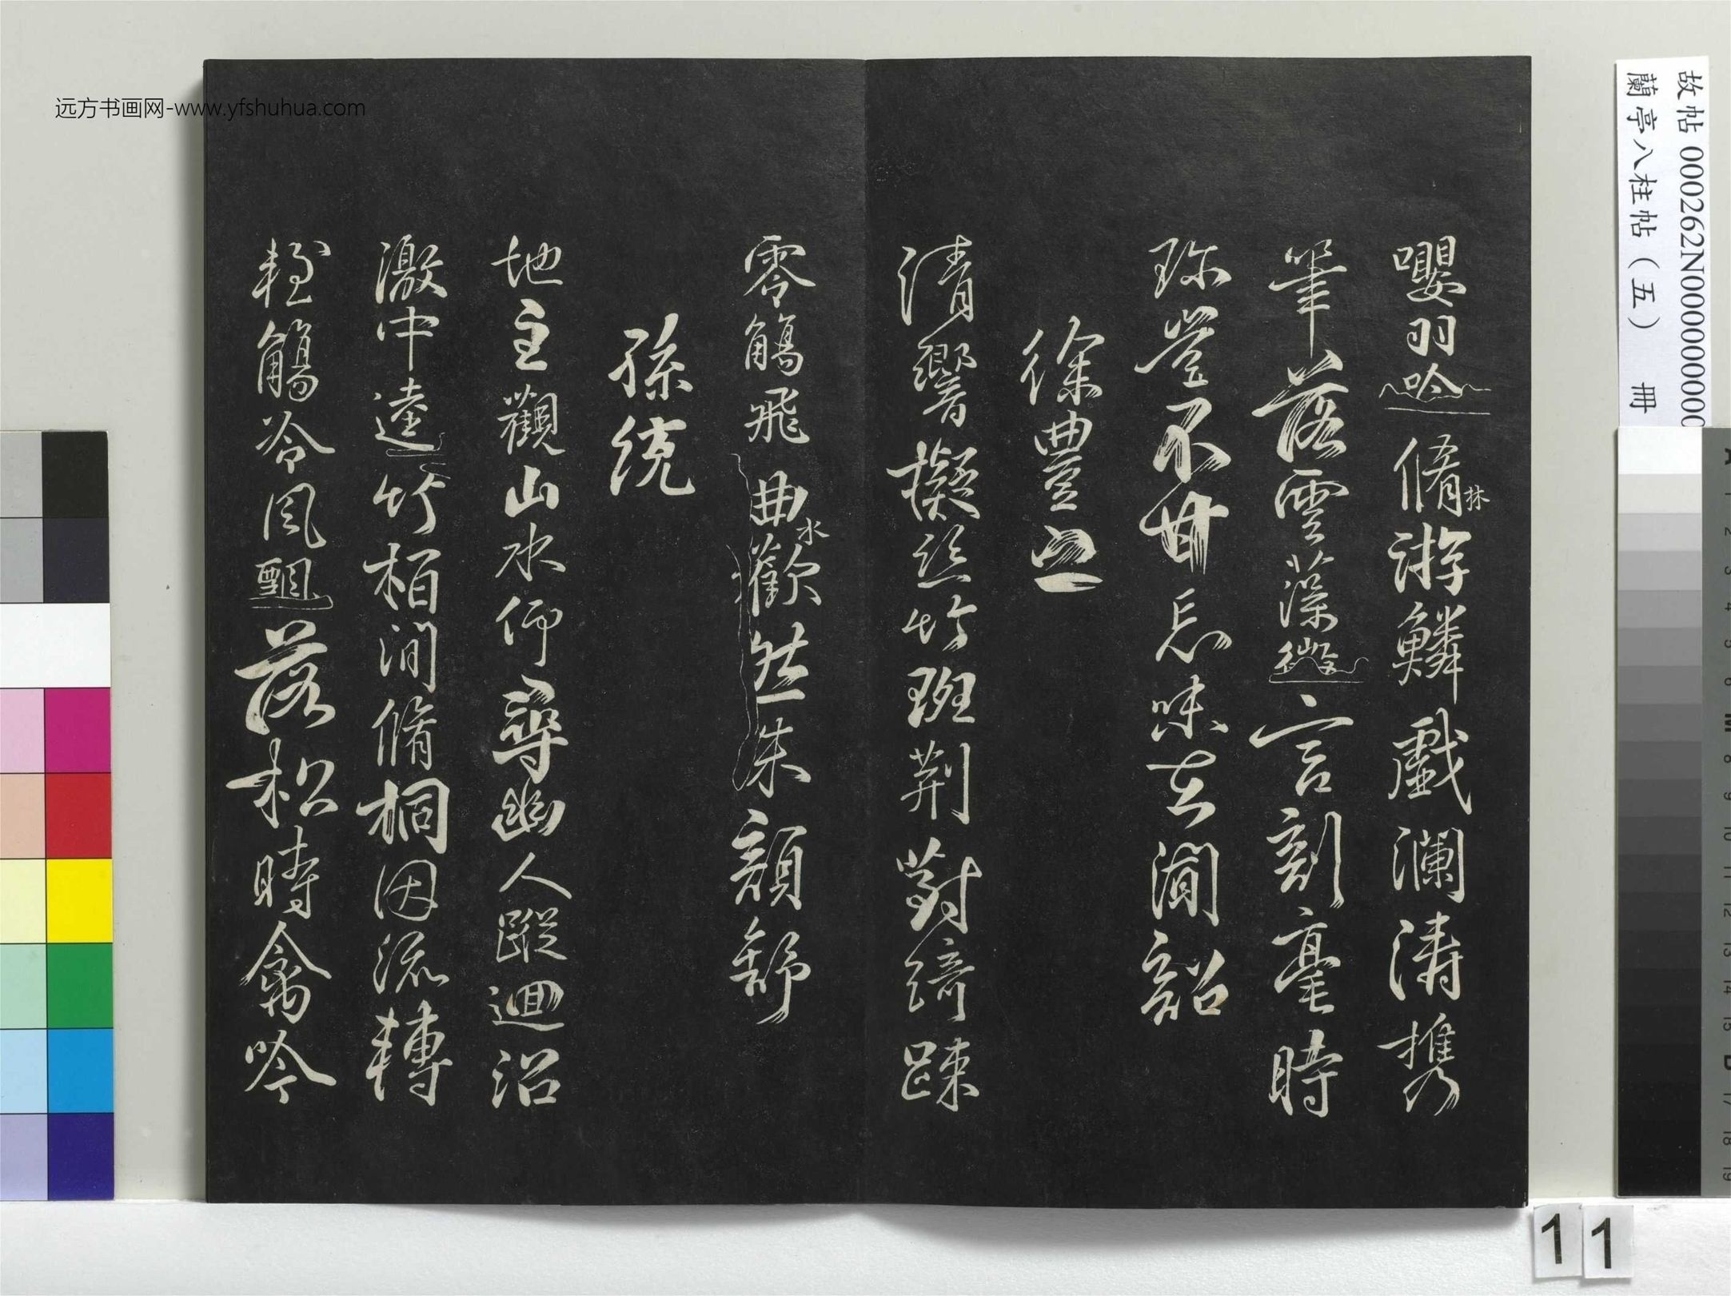 远方书画网-www.yfshuhua.com
故帖 000262N000000000
蘭亭八柱帖（五） 冊
嚶羽吟脩林游鱗戲瀾濤携
筆落雲藻微言剖毫時
珍豈不甘忘味在聞韶
徐豐之
清響擬絲竹班荊對綺疎
零觴飛曲水歡然朱顏舒
孫統
地主觀山水仰尋幽人蹤迴沼
激中逵竹栢間脩桐因流轉
輕觴冷風飄落松時禽吟
11